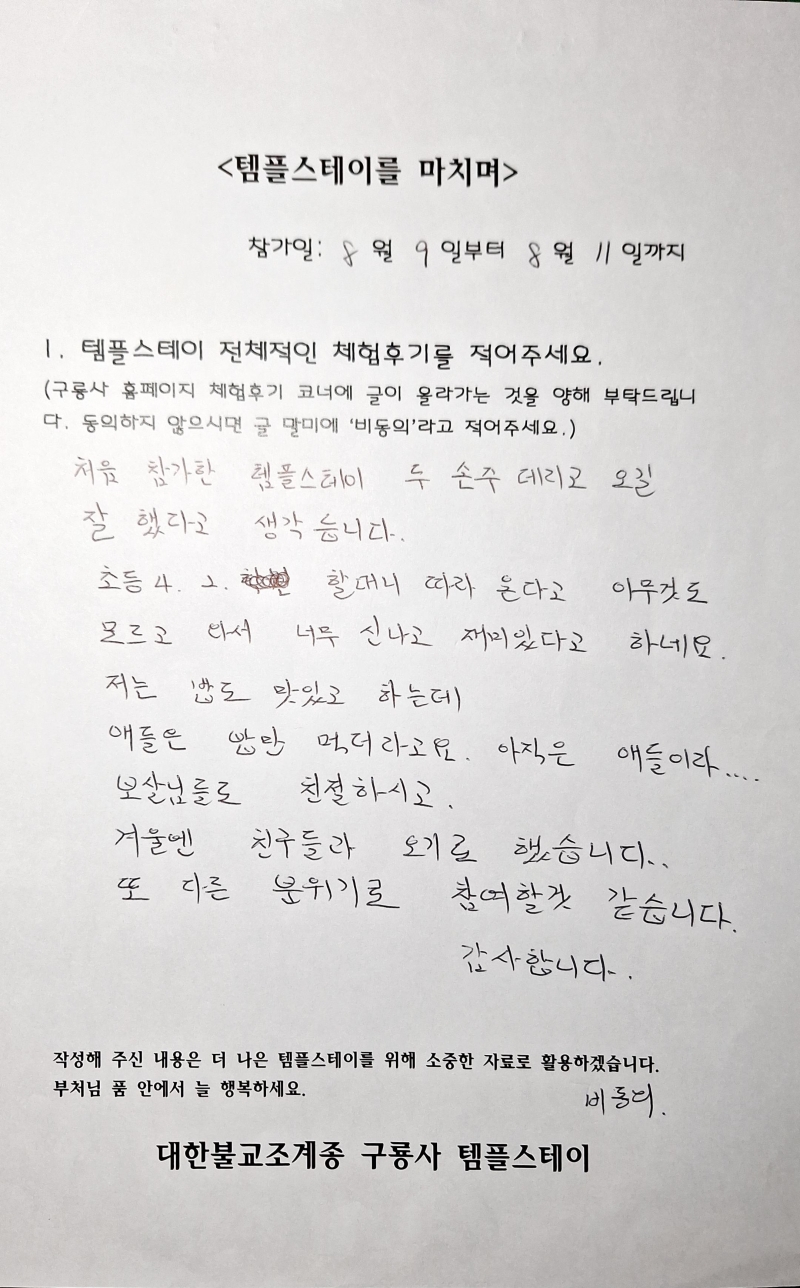 <템플스테이를 마치며>
참가일: 8 월 9 일부터 8 월 11 일까지
1. 템플스테이 전체적인 체험후기를 적어주세요.
(구룡사 홈페이지 체험후기 코너에 글이 올라가는 것을 양해 부탁드립니
다. 동의하지 않으시면 글 말미에 '비동의'라고 적어주세요.)
처음 참가한 템플스테이 두 손주 데리고 오길
잘 했다고 생각 듭니다.
초등 4. 2. 할머니 따라 온다고 아무것도
모르고 와서 너무 신나고 재미있다고 하네요.
저는 밥도 맛있고 하는데
애들은 밥만 먹더라고요. 아직은 애들이라....
보살님들도 친절하시고.
겨울엔 친구들과 오기로 했습니다..
또 다른 분위기로 참여할것 같습니다.
감사합니다.
작성해 주신 내용은 더 나은 템플스테이를 위해 소중한 자료로 활용하겠습니다.
부처님 품 안에서 늘 행복하세요.
비동의.
대한불교조계종 구룡사 템플스테이